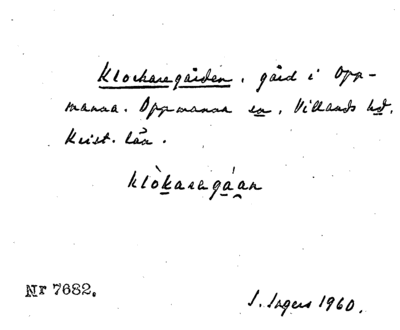 Klockaregården, gård i Opp-
manna. Oppmanna sn, Villands hd.
Krist. län.
klòkaregá̱an
Nr 7682.
I. Ingers 1960.